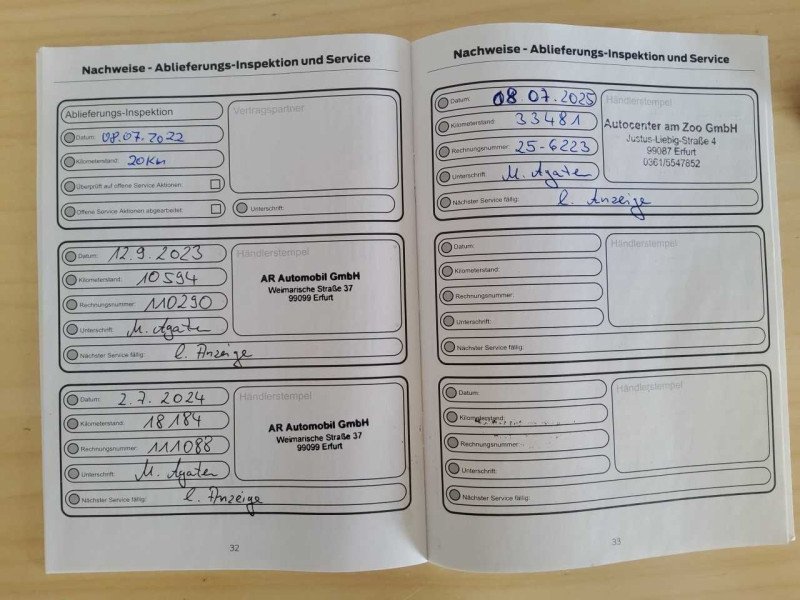 Nachweise - Ablieferungs-Inspektion und Service
Ablieferungs-Inspektion
Vertragspartner
Datum: 08.07.2022
Kilometerstand: 20 Km
Überprüft auf offene Service Aktionen:
Offene Service Aktionen abgearbeitet:
Unterschrift:
Datum: 12.9.2023
Händlerstempel
Kilometerstand: 10594
AR Automobil GmbH
Weimarische Straße 37
99099 Erfurt
Rechnungsnummer: 110290
Unterschrift: M. Agaten
Nächster Service fällig: l. Anzeige
Datum: 2.7.2024
Händlerstempel
Kilometerstand: 18184
AR Automobil GmbH
Weimarische Straße 37
99099 Erfurt
Rechnungsnummer: 111088
Unterschrift: M. Agaten
Nächster Service fällig: l. Anzeige
32
Nachweise - Ablieferungs-Inspektion und Service
Datum: 08.07.2025
Händlerstempel
Kilometerstand: 33481
Autocenter am Zoo GmbH
Justus-Liebig-Straße 4
99087 Erfurt
0361/5547852
Rechnungsnummer: 25-6223
Unterschrift: M. Agaten
Nächster Service fällig: l. Anzeige
Datum:
Händlerstempel
Kilometerstand:
Rechnungsnummer:
Unterschrift:
Nächster Service fällig:
Datum:
Händlerstempel
Kilometerstand:
Rechnungsnummer:
Unterschrift:
Nächster Service fällig:
33